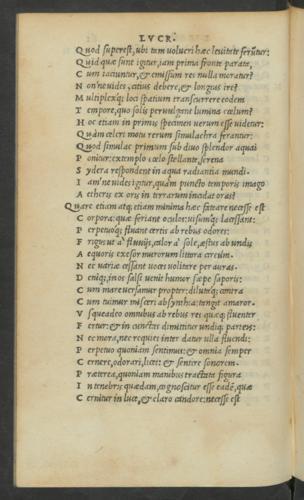 LVCR.
Quod superest, ubi tam volucri hæc levitate ferũtur:
Quid quæ sunt igitur, iam prima fronte parata,
Cum iaciuntur, & emissum res nulla moratur?
Nonne vides, citius debere, & longius ire?
Multiplexq; loci spatium transcurrere eodem
Tempore, quo solis pervulgent lumina cœlum?
Hoc etiam in primis specimen uerum esse videtur:
Quàm celeri motu rerum simulachra ferantur:
Quod simulac primum sub diuo splendor aquai
Ponitur: extemplo cœlo stellante, serena
Sydera respondent in aqua radiantia mundi.
Iam'ne uides igitur, quàm puncto temporis imago
Aetheris ex oris in terrarum incidat oras?
Quare etiam atq; etiam minima hæc fateare necesse est
Corpora: quæ feriant oculos: uisumq; lacessant:
Perpetuoq; fluant certis ab rebus odores:
Frigus ut à fluuijs, calor à sole, æstus ab undis
Aequoris exesor murorum littora circum.
Nec variæ cessant uoces uolitare per auras.
Deniq; in os salsi uenit humor sæpe saporis:
Cum mare uersamur propter: dilutaq; contra
Cum tuimur misceri absynthia: tangit amaror.
Vsqueadeo omnibus ab rebus res quæq; fluenter
Fertur: & in cunctas dimittitur undiq; parteis:
Nec mora, nec requies inter datur ulla fluendi:
Perpetuo quoniam sentimus: & omnia semper
Cernere, odorari, licet: & sentire sonorem.
Præterea, quoniam manibus tractata figura
In tenebris quædam, cognoscitur esse eadẽ, quæ
Cernitur in luce, & claro candore: necesse est